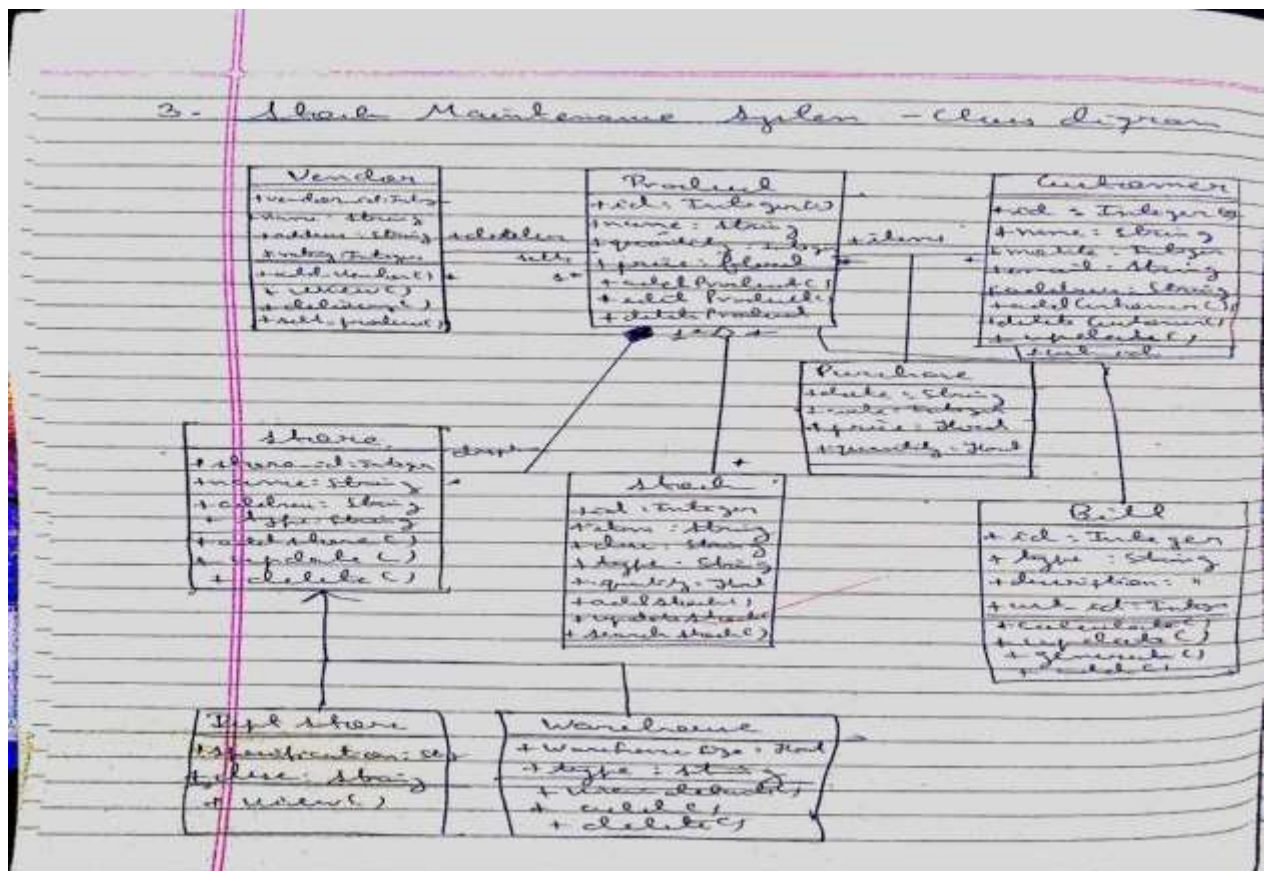 3. Stock Maintenance System - Class digram
Vendor
+ name: String
+ address: String
+ rating: Integer
+ add Vendor()
+ review()
+ delivery()
+ sell_product()
sells
Product
+ id: Integer()
+ name: String
+ quantity: Integer
+ price: float
+ add Product()
+ edit Product()
+ delete Product
+ items
Customer
+ id: Integer
+ name: String
+ mobile: Integer
+ email: String
+ address: String
+ add Customer()
+ delete Customer()
+ update()
Purchase
+ date: String
+ price: float
+ quantity: float
Store
+ store_id: Integer
+ name: String
+ address: String
+ type: String
+ add store()
+ update()
+ delete()
Stock
+ id: Integer
+ item: String
+ type: String
+ quantity: float
+ add stock()
+ update stock()
+ search stock()
Bill
+ id: Integer
+ type: String
+ description: "
+ cust_id: Integer
+ calculate()
+ update()
+ generate()
Dept store
+ specification: Str
String
+ view()
Warehouse
+ warehouse size: float
+ type: string
+ delete()